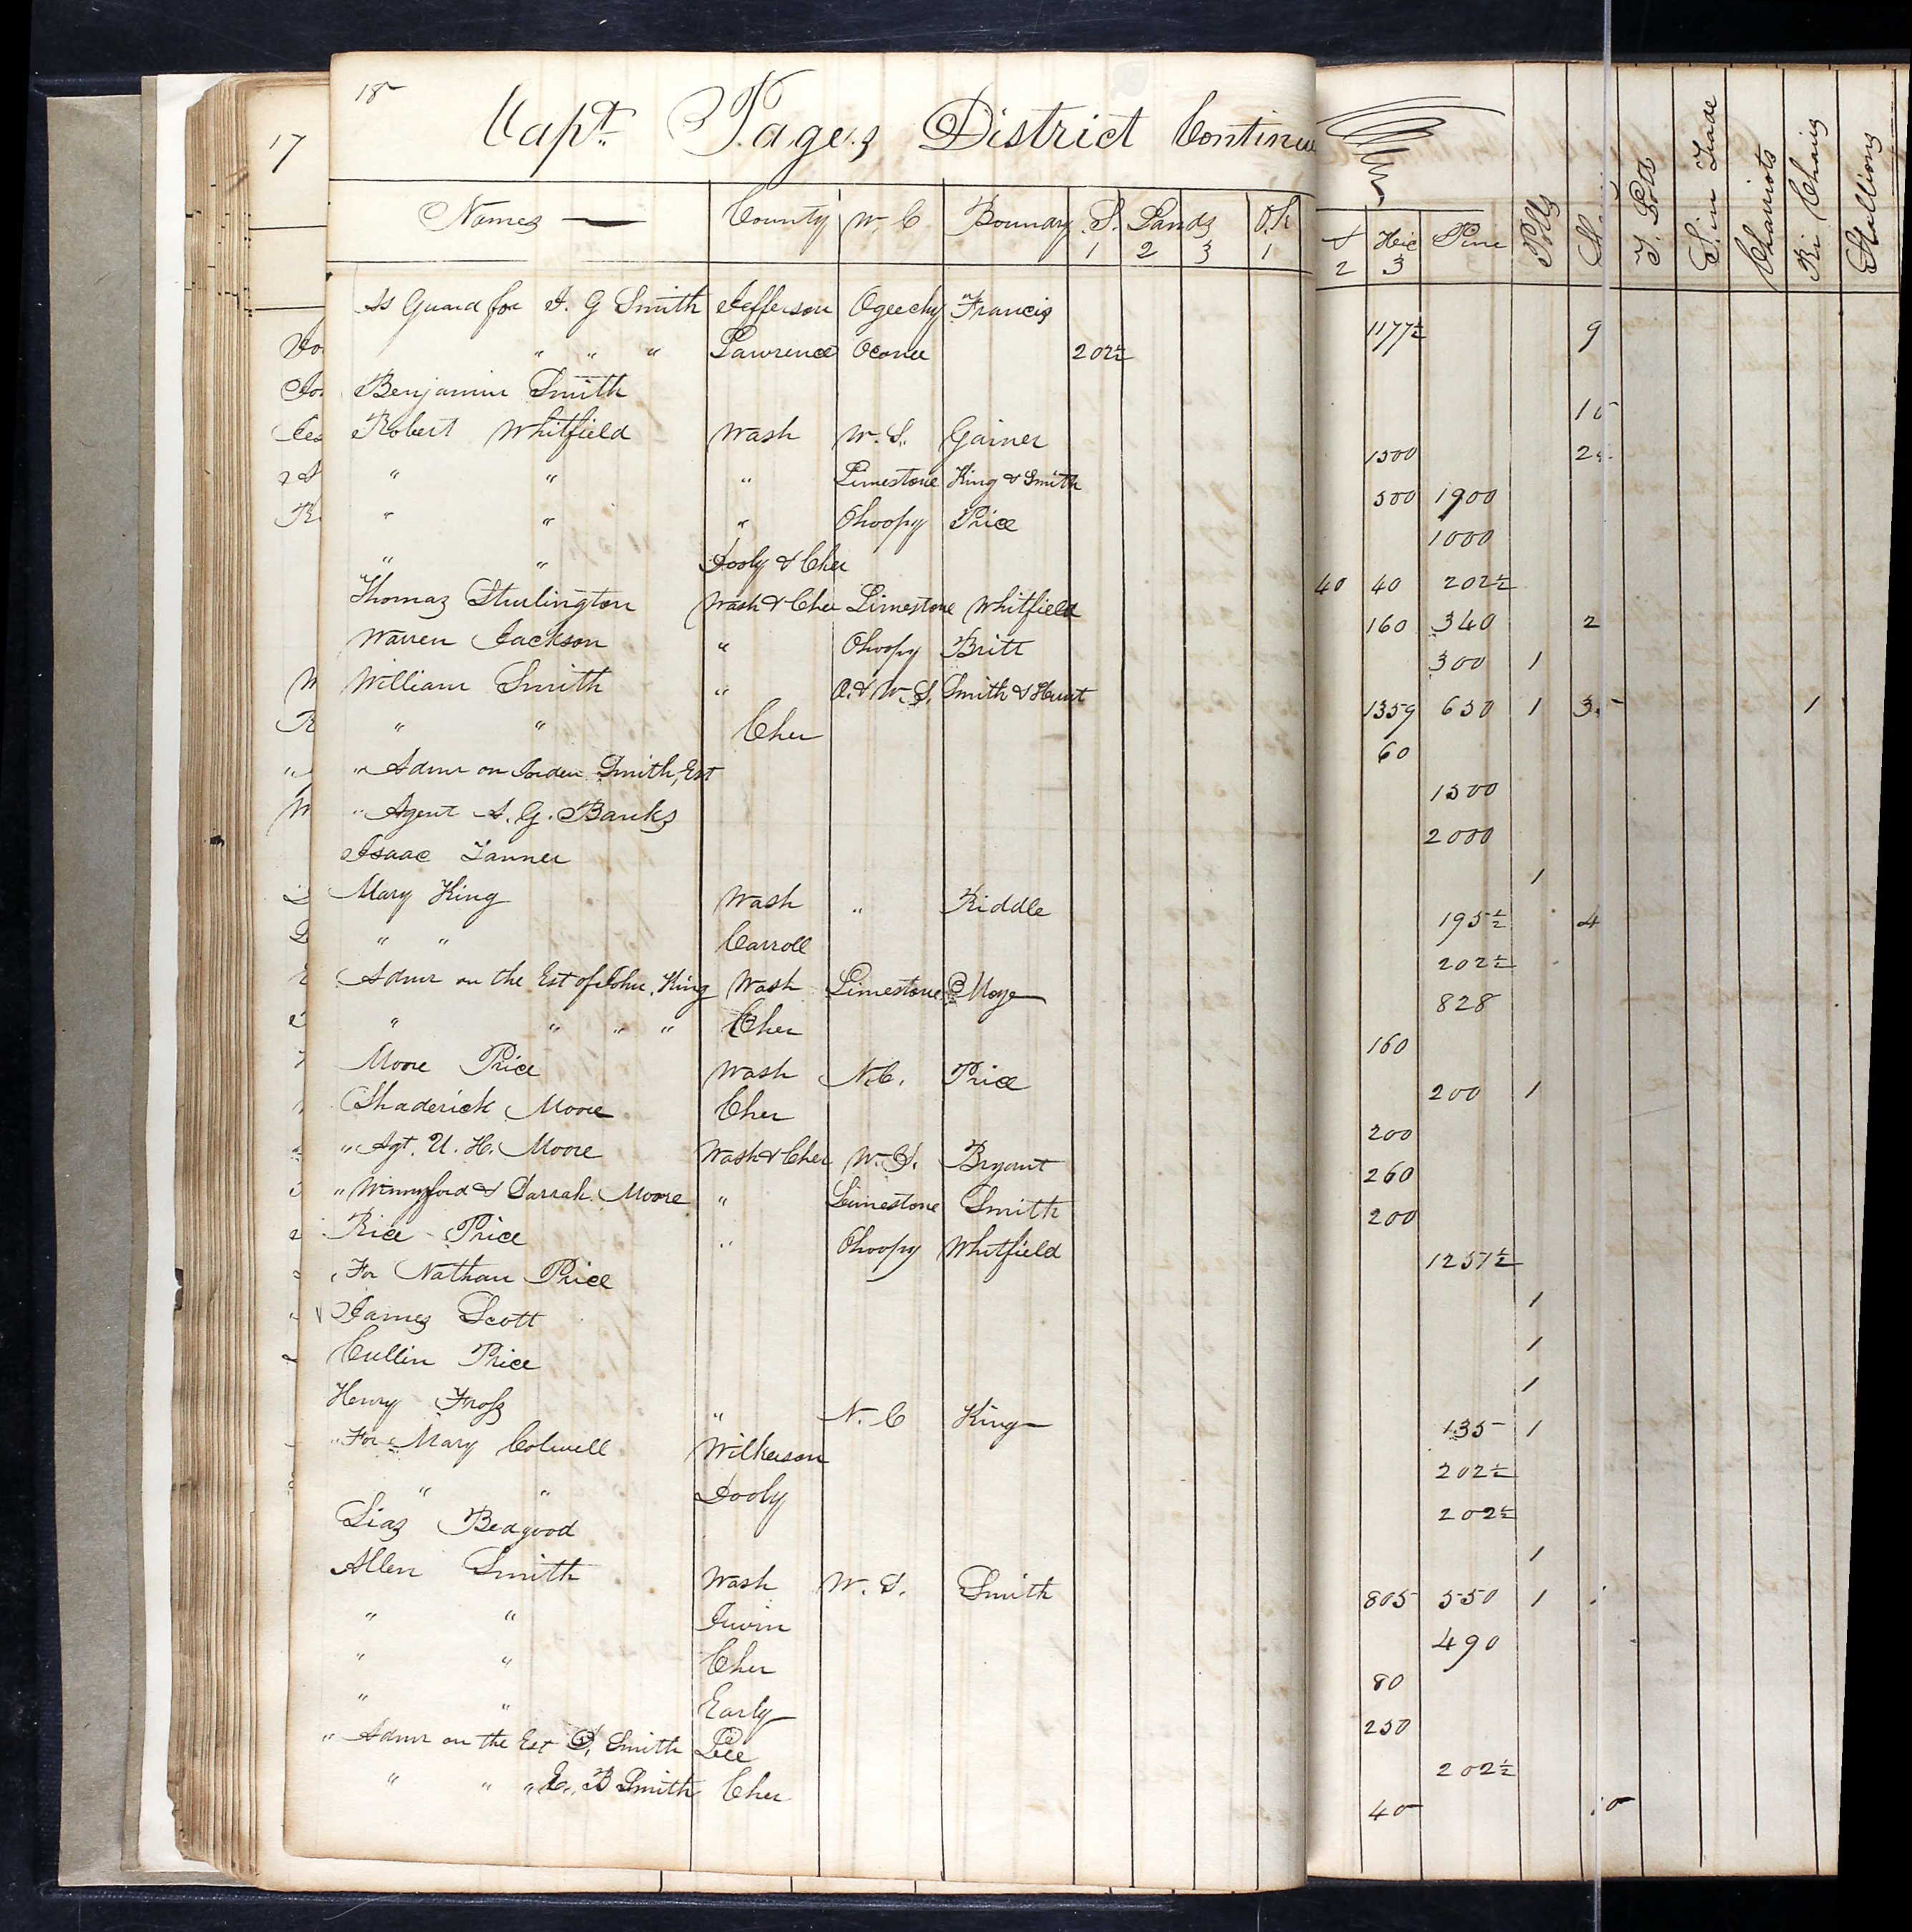 17
18
Capt. Pages District Continu
Names County W. C Boundary S. Lands O. h
1 2 3 1
& Hic Pine Polls T. Lots S. in Trade Chariots Chairs Stallions
2 3
As Guard for I. G Smith Jefferson Ogeechy Francis 1177½ 9
" " " Lawrence Oconee 202½
Benjamin Smith
Robert Whitfield Wash W. S. Gainer 1500
" " " Limestone King & Smith 500 1900
" " " Ohoopy Price 1000
" " Dooly & Cher 40 40 202½
Thomas Sturlington Wash & Cher Limestone Whitfield 160 340 2
Warren Jackson " Ohoopy Britt 300 1
William Smith " O. & W. S. Smith & Hunt 1359 650 1 1
" " Cher 60
" Admr on Jorden Smith, Est 1500
" Agent A. G. Banks 2000
Isaac Tanner 1
Mary King Wash " Riddle 195½ 4
" " Carroll 202½
Admr on the Est of John King Wash Limestone Moye 828
" " " " Cher 160
Moore Price Wash N. C. Price 200 1
Shaderick Moore Cher 200
" Agt. U. H. Moore Wash & Cher W. S. Bryant 260
" Winnyford & Sarrah Moore " Limestone Smith 200
Rice Price " Ohoopy Whitfield 1257½
" For Nathan Price 1
James Scott 1
Cullin Price 1
Henry " N. C King 135 1
" For Mary Colwell Wilkerson 202½
" " Dooly 202½
Bedgood 1
Allen Smith Wash W. S. Smith 805 550 1
" " Irwin 490
" " Cher 80
" " Early 250
" Admr on the Est S. Smith Lee 202½
" " " B Smith Cher 40